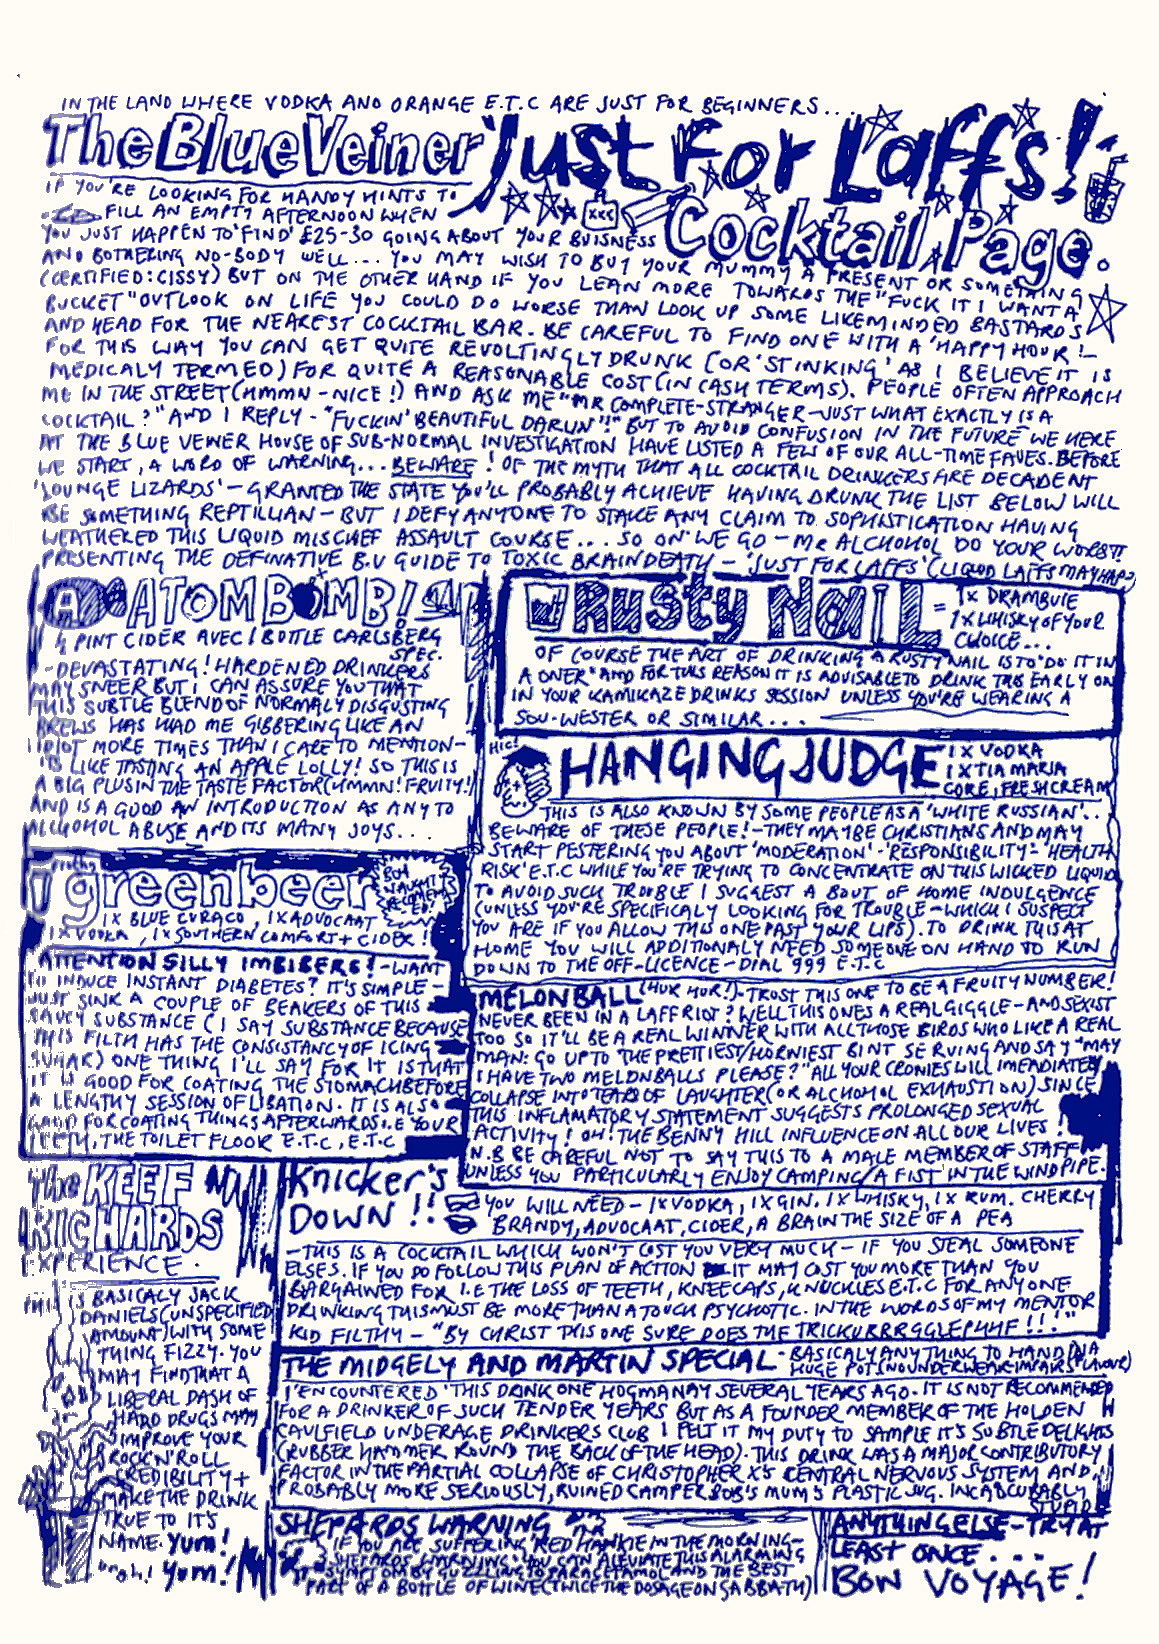 IN THE LAND WHERE VODKA AND ORANGE E.T.C ARE JUST FOR BEGINNERS...
The Blue Veiner 'Just For Laffs!
Cocktail Page.
IF YOU'RE LOOKING FOR HANDY HINTS TO
FILL AN EMPTY AFTERNOON WHEN
YOU JUST HAPPEN TO 'FIND' £25-30 GOING ABOUT YOUR BUISNESS
AND BOTHERING NO-BODY WELL... YOU MAY WISH TO BUY YOUR MUMMY A PRESENT OR SOMETHING
(CERTIFIED: CISSY) BUT ON THE OTHER HAND IF YOU LEAN MORE TOWARDS THE "FUCK IT! I WANT A
BUCKET" OUTLOOK ON LIFE YOU COULD DO WORSE THAN LOOK UP SOME LIKEMINDED BASTARDS
AND HEAD FOR THE NEAREST COCKTAIL BAR. BE CAREFUL TO FIND ONE WITH A 'HAPPY HOUR'!-
FOR THIS WAY YOU CAN GET QUITE REVOLTINGLY DRUNK (OR 'STINKING' AS I BELIEVE IT IS
MEDICALY TERMED) FOR QUITE A REASONABLE COST (IN CASH TERMS). PEOPLE OFTEN APPROACH
ME IN THE STREET (HMMN-NICE!) AND ASK ME "MR COMPLETE-STRANGER-JUST WHAT EXACTLY IS A
COCKTAIL?" AND I REPLY- "FUCKIN' BEAUTIFUL DARLIN'!" BUT TO AVOID CONFUSION IN THE FUTURE WE HERE
AT THE BLUE VEINER HOUSE OF SUB-NORMAL INVESTIGATION HAVE LISTED A FEW OF OUR ALL-TIME FAVES. BEFORE
WE START, A WORD OF WARNING... BEWARE! OF THE MYTH THAT ALL COCKTAIL DRINKERS ARE DECADENT
'LOUNGE LIZARDS' - GRANTED THE STATE YOU'LL PROBABLY ACHIEVE HAVING DRUNK THE LIST BELOW WILL
BE SOMETHING REPTILLIAN - BUT I DEFY ANYONE TO STAKE ANY CLAIM TO SOPHISTICATION HAVING
WEATHERED THIS LIQUID MISCHIEF ASSAULT COURSE... SO ON WE GO - MR ALCHOHOL DO YOUR WORST!!
PRESENTING THE DEFINATIVE B.V GUIDE TO TOXIC BRAINDEATH - 'JUST FOR LAFFS' (LIQUID LAFFS MAYHAP?)
A ATOM BOMB!
½ PINT CIDER AVEC 1 BOTTLE CARLSBERG
SPEC.
-DEVASTATING! HARDENED DRINKERS
MAY SNEER BUT I CAN ASSURE YOU THAT
THIS SUBTLE BLEND OF NORMALY DISGUSTING
BREWS HAS HAD ME GIBBERING LIKE AN
IDIOT MORE TIMES THAN I CARE TO MENTION-
IT'S LIKE TASTING AN APPLE LOLLY! SO THIS IS
A BIG PLUS IN THE TASTE FACTOR (UMMN! FRUITY!)
AND IS A GOOD AN INTRODUCTION AS ANY TO
ALCHOHOL ABUSE AND ITS MANY JOYS...
Rusty Nail
= 1X DRAMBUIE
1X WHISKY OF YOUR
CHOICE...
OF COURSE THE ART OF DRINKING A RUSTY NAIL IS TO 'DO IT IN
A ONER' AND FOR THIS REASON IT IS ADVISABLE TO DRINK THIS EARLY ON
IN YOUR KAMIKAZE DRINKS SESSION UNLESS YOU'RE WEARING A
SOU-WESTER OR SIMILAR...
HIC!
HANGING JUDGE
1 X VODKA
1 X TIA MARIA
COKE, FRESH CREAM
THIS IS ALSO KNOWN BY SOME PEOPLE AS A 'WHITE RUSSIAN'..
BEWARE OF THESE PEOPLE!-THEY MAYBE CHRISTIANS AND MAY
START PESTERING YOU ABOUT 'MODERATION'-'RESPONSIBILITY'-'HEALTH
RISK' E.T.C WHILE YOU'RE TRYING TO CONCENTRATE ON THIS WICKED LIQUID
TO AVOID SUCH TROUBLE I SUGGEST A BOUT OF HOME INDULGENCE
(UNLESS YOU'RE SPECIFICALY LOOKING FOR TROUBLE-WHICH I SUSPECT
YOU ARE IF YOU ALLOW THIS ONE PAST YOUR LIPS). TO DRINK THIS AT
HOME YOU WILL ADDITIONALY NEED SOMEONE ON HAND TO RUN
DOWN TO THE OFF-LICENCE - DIAL 999 E.T.C
greenbeer
1X BLUE CURACO, 1X ADVOCAAT
1X VODKA, 1X SOUTHERN COMFORT + CIDER!
ATTENTION SILLY IMBIBERS! -WANT
TO INDUCE INSTANT DIABETES? IT'S SIMPLE-
JUST SINK A COUPLE OF BEAKERS OF THIS
SUBSTANCE (I SAY SUBSTANCE BECAUSE
THIS FILTH HAS THE CONSISTANCY OF ICING
SUGAR) ONE THING I'LL SAY FOR IT IS THAT
IT IS GOOD FOR COATING THE STOMACH BEFORE
A LENGTHY SESSION OF LIBATION. IT IS ALSO
GOOD FOR COATING THINGS AFTERWARDS I.E YOUR
TEETH, THE TOILET FLOOR E.T.C, E.T.C
MELONBALL (HUR HUR!)-TRUST THIS ONE TO BE A FRUITY NUMBER!
NEVER BEEN IN A LAFF RIOT? WELL THIS ONES A REAL GIGGLE-AND SEXIST
TOO SO IT'LL BE A REAL WINNER WITH ALL THOSE BIRDS WHO LIKE A REAL
MAN: GO UP TO THE PRETTIEST/HORNIEST BINT SERVING AND SAY "MAY
I HAVE TWO MELONBALLS PLEASE?" ALL YOUR CRONIES WILL IMEADIATELY
COLLAPSE INTO TEARS OF LAUGHTER (OR ALCHOHOL EXHAUSTION) SINCE
THIS INFLAMATORY STATEMENT SUGGESTS PROLONGED SEXUAL
ACTIVITY! OH! THE BENNY HILL INFLUENCE ON ALL OUR LIVES!
N.B BE CAREFUL NOT TO SAY THIS TO A MALE MEMBER OF STAFF
UNLESS YOU PARTICULARLY ENJOY CAMPING/A FIST IN THE WINDPIPE.
The KEEF
RICHARDS
EXPERIENCE.
THIS IS BASICALY JACK
DANIELS (UNSPECIFIED
AMOUNT) WITH SOME
THING FIZZY. YOU
MAY FIND THAT A
LIBERAL DASH OF
HARD DRUGS MAY
IMPROVE YOUR
ROCK'N'ROLL
CREDIBILITY +
MAKE THE DRINK
TRUE TO IT'S
NAME. Yum!
"oh! Yum!
Knicker's
DOWN!!
YOU WILL NEED - 1X VODKA, 1X GIN. 1X WHISKY, 1X RUM. CHERRY
BRANDY, ADVOCAAT, CIDER, A BRAIN THE SIZE OF A PEA
-THIS IS A COCKTAIL WHICH WON'T COST YOU VERY MUCH - IF YOU STEAL SOMEONE
ELSES. IF YOU DO FOLLOW THIS PLAN OF ACTION IT MAY COST YOU MORE THAN YOU
BARGAINED FOR I.E THE LOSS OF TEETH, KNEECAPS, KNUCKLES E.T.C FOR ANYONE
DRINKING THIS MUST BE MORE THAN A TOUCH PSYCHOTIC. IN THE WORDS OF MY MENTOR
KID FILTHY - "BY CHRIST THIS ONE SURE DOES THE TRICKURRRGGLEPHHF!!!"
THE MIDGELY AND MARTIN SPECIAL - BASICALY ANYTHING TO HAND IN A
HUGE POT (NO UNDERWEAR-IMPAIRS FLAVOUR)
I 'ENCOUNTERED' THIS DRINK ONE HOGMANAY SEVERAL YEARS AGO. IT IS NOT RECOMMENDED
FOR A DRINKER OF SUCH TENDER YEARS BUT AS A FOUNDER MEMBER OF THE HOLDEN
CAULFIELD UNDERAGE DRINKERS CLUB I FELT IT MY DUTY TO SAMPLE IT'S SUBTLE DELIGHTS
(RUBBER HAMMER ROUND THE BACK OF THE HEAD). THIS DRINK WAS A MAJOR CONTRIBUTORY
FACTOR IN THE PARTIAL COLLAPSE OF CHRISTOPHER X'S CENTRAL NERVOUS SYSTEM AND,
PROBABLY MORE SERIOUSLY, RUINED CAMPER BOB'S MUM'S PLASTIC JUG. INCALCUBABLY
STUPID
SHEPARDS WARNING
IF YOU ARE SUFFERING 'RED HANKIE IN THE MORNING-
SHEPARDS WARNING' YOU CAN ALEVIATE THIS ALARMING
SYMPTOM BY GUZZLING 10 PARACETAMOL AND THE BEST
PART OF A BOTTLE OF WINE (TWICE THE DOSAGE ON SABBATH)
ANYTHING ELSE-TRY AT
LEAST ONCE...
BON VOYAGE!